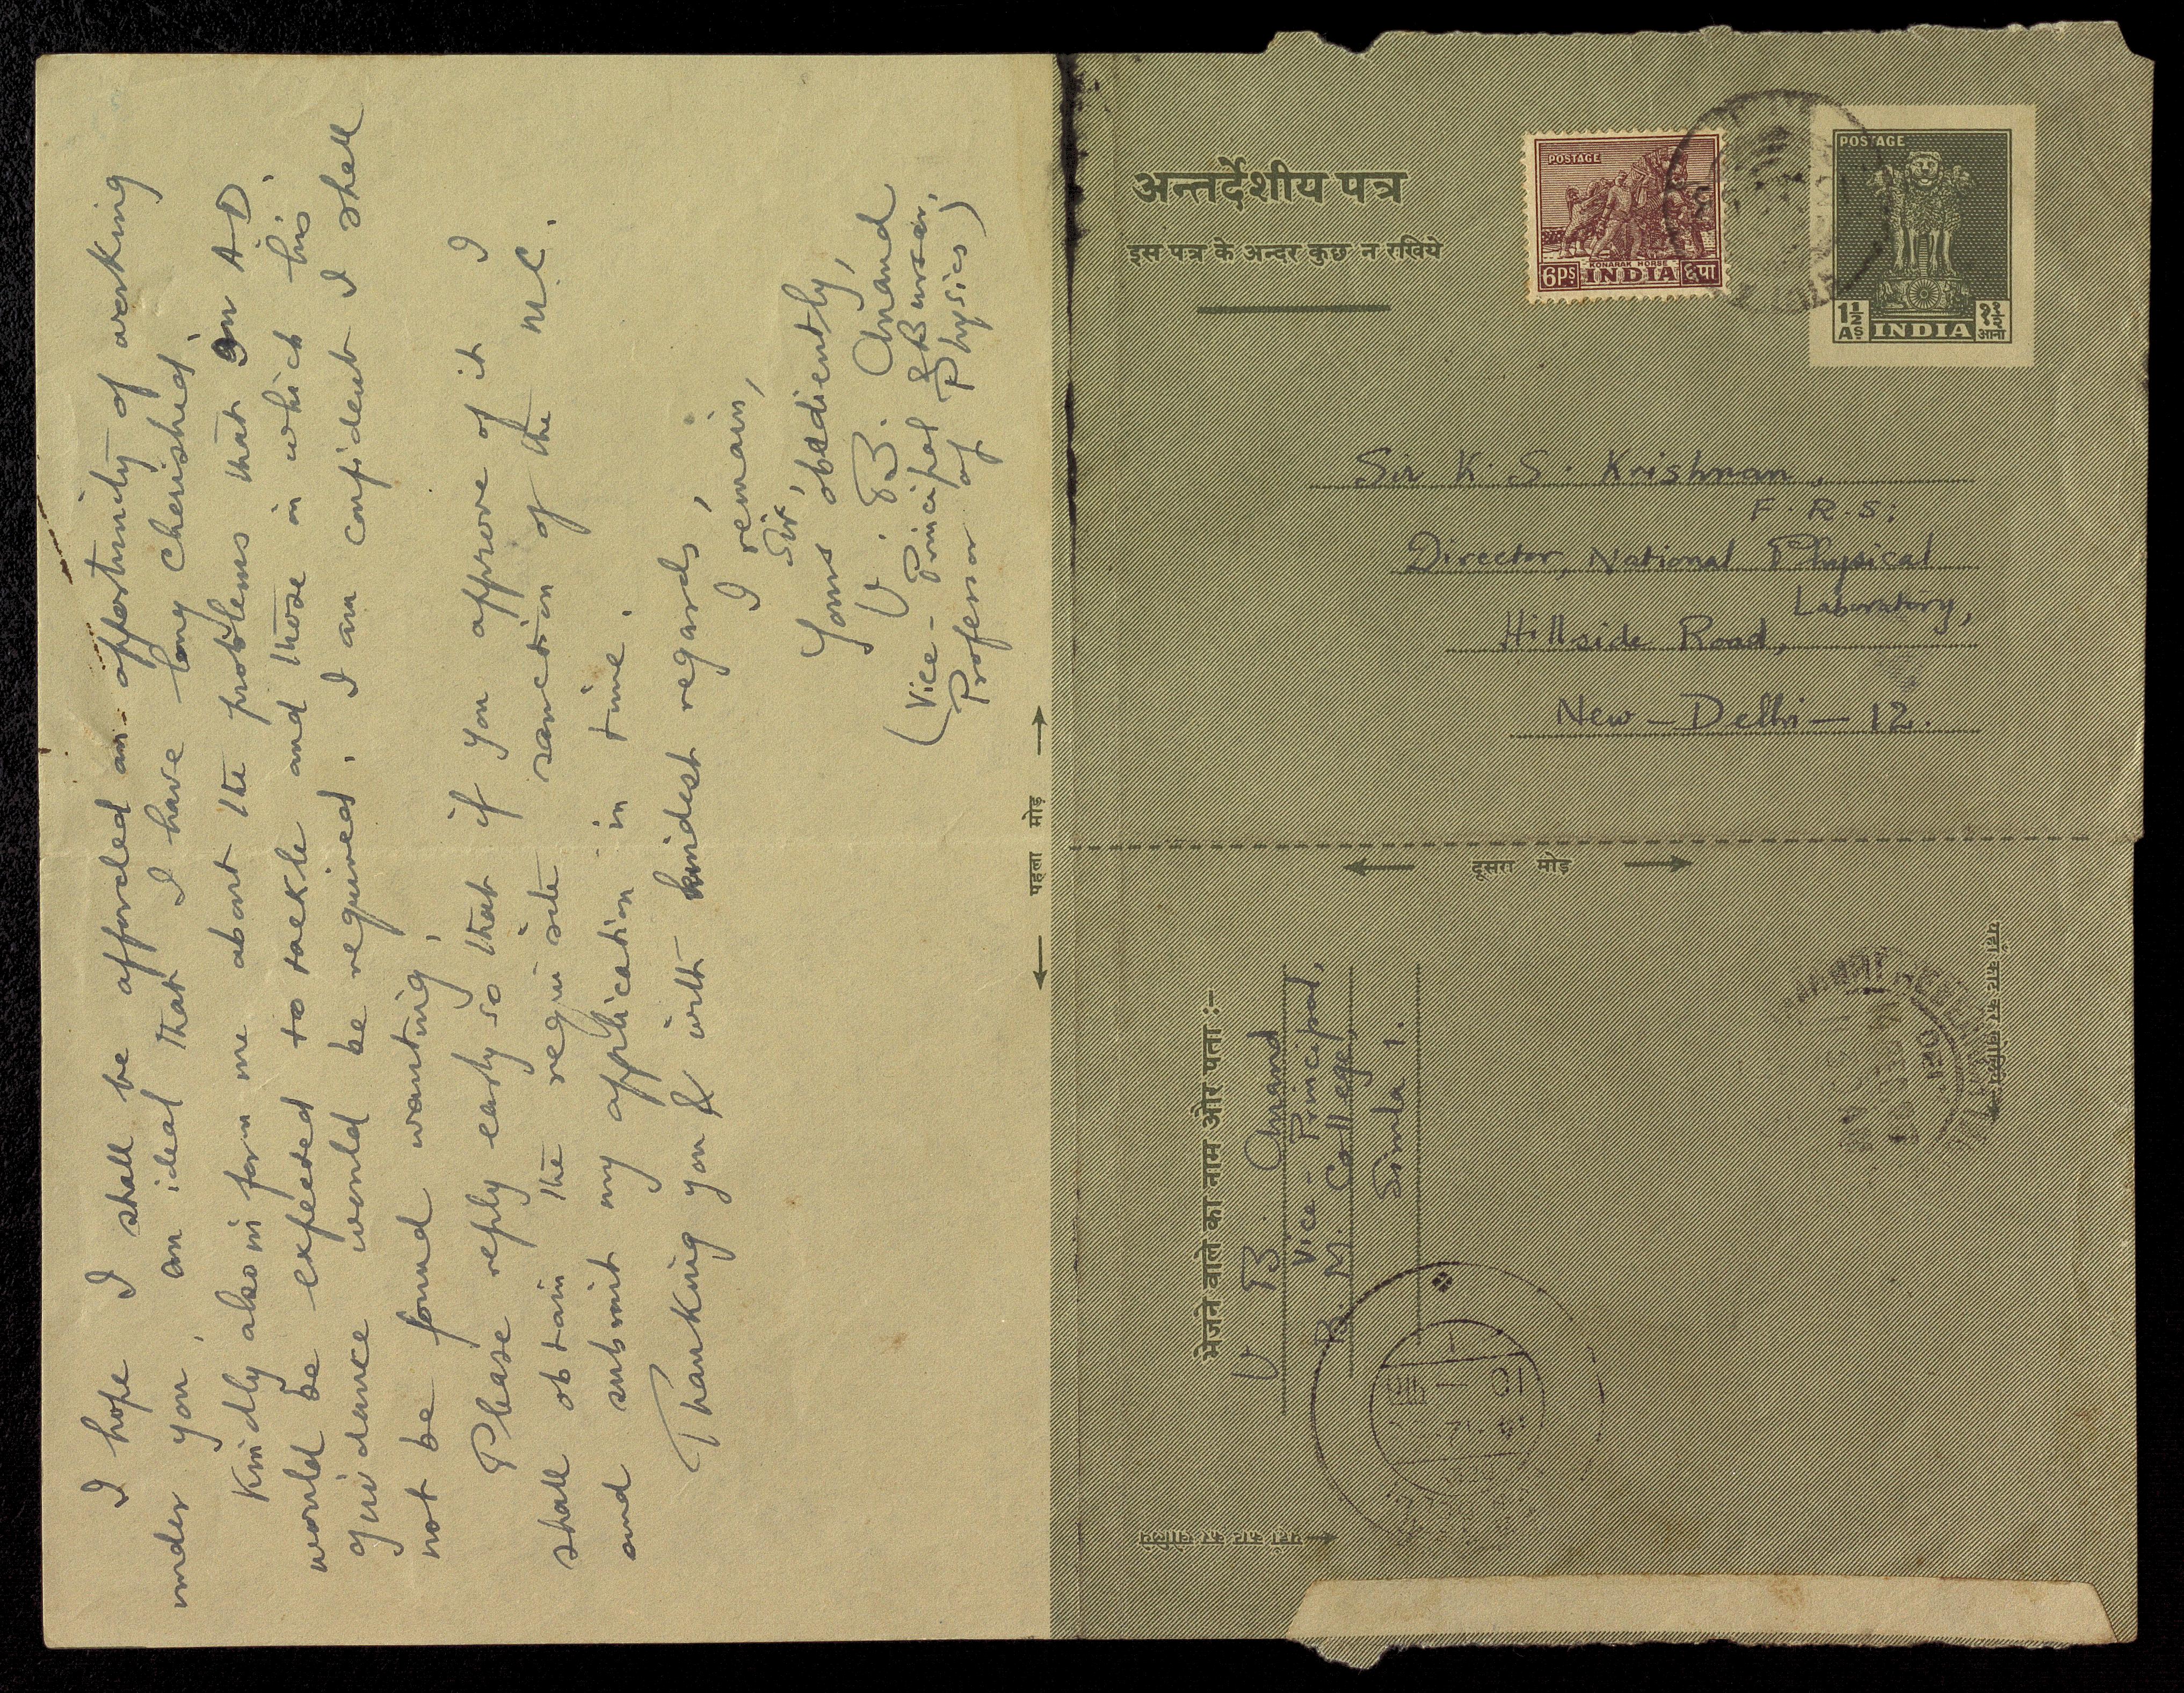 I hope I shall be afforded an opportunity of working
under you, an ideal that I have long cherished.
Kindly also inform me about the problems that Dr A D.
would be expected to tackle and those in which his
guidance would be required. I am confident I shall
not be found wanting.
Please reply early so that if you approve of it I
shall obtain the requisite sanction of the M.C.
and submit my application in time.
Thanking you & with kindest regards,
I remain,
Sir,
Yours obediently,
V. B. Anand
(Vice-Principal & Bursar,
Professor of Physics)
पहला मोड़
अन्तर्देशीय पत्र
इस पत्र के अन्दर कुछ न रखिये
POSTAGE
KONARAK HORSE
6PS INDIA ६पा
POSTAGE
1½ AS INDIA १½ आना
Sir K. S. Krishnan,
F. R. S.;
Director, National Physical
Laboratory,
Hillside Road,
New-Delhi-12.
दूसरा मोड़
भेजने वाले का नाम और पता :-
V. B. Anand
Vice-Principal,
B. M. College,
Simla 1.
यहाँ काट कर खोलिये
यहाँ काट कर खोलिये